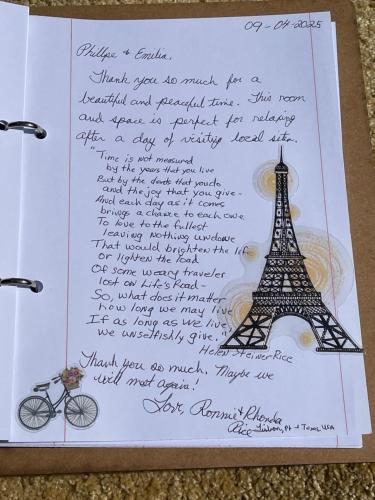 09-04-2025
Phillpe & Emilia,
Thank you so much for a
beautiful and peaceful time. This room
and space is perfect for relaxing
after a day of visiting local sites.
"Time is not measured
by the years that you live
But by the deeds that you do
and the joy that you give-
And each day as it comes
brings a chance to each one
To love to the fullest
leaving nothing undone
That would brighten the life
or lighten the load
Of some weary traveler
lost on Life's Road-
So, what does it matter
how long we may live
If as long as we live
we unselfishly give."
Helen Steiner Rice
Thank you so much. Maybe we
will meet again!
Love, Ronnie & Rhonda
Rice Lisbon, Pt & Texas, USA